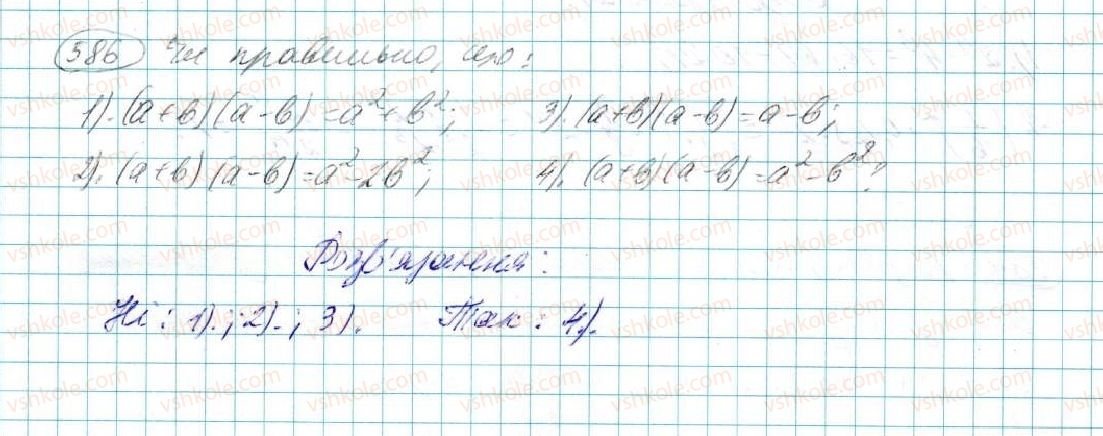 586 Чи правильно, що:
1). (a+b)(a-b)=a²+b²; 3). (a+b)(a-b)=a-b;
2). (a+b)(a-b)=a²-2b²; 4). (a+b)(a-b)=a²-b²?
Розв'язання:
Ні: 1).; 2).; 3). Так: 4).